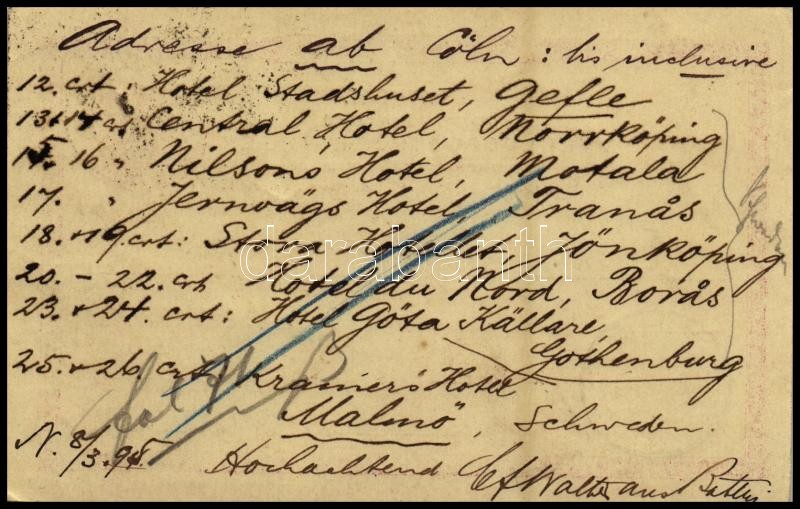 Adresse ab Cöln : bis inclusive
12. crt : Hotel Stadshuset, Gefle
13 + 14 crt Central Hotel, Norrköping
15. 16 " Nilsons Hotel, Motala
17. " Jernvägs Hotel, Tranås
18. + 19. crt : Stora Hotellet, Jönköping
20. - 22. crt Hotel du Nord, Borås
23. + 24. crt : Hotel Göta Källare,
Gothenburg
25. + 26. crt Kramers Hotel
Malmö, Schweden.
N. 8/3. 95
Hochachtend
Walter aus
darabanth